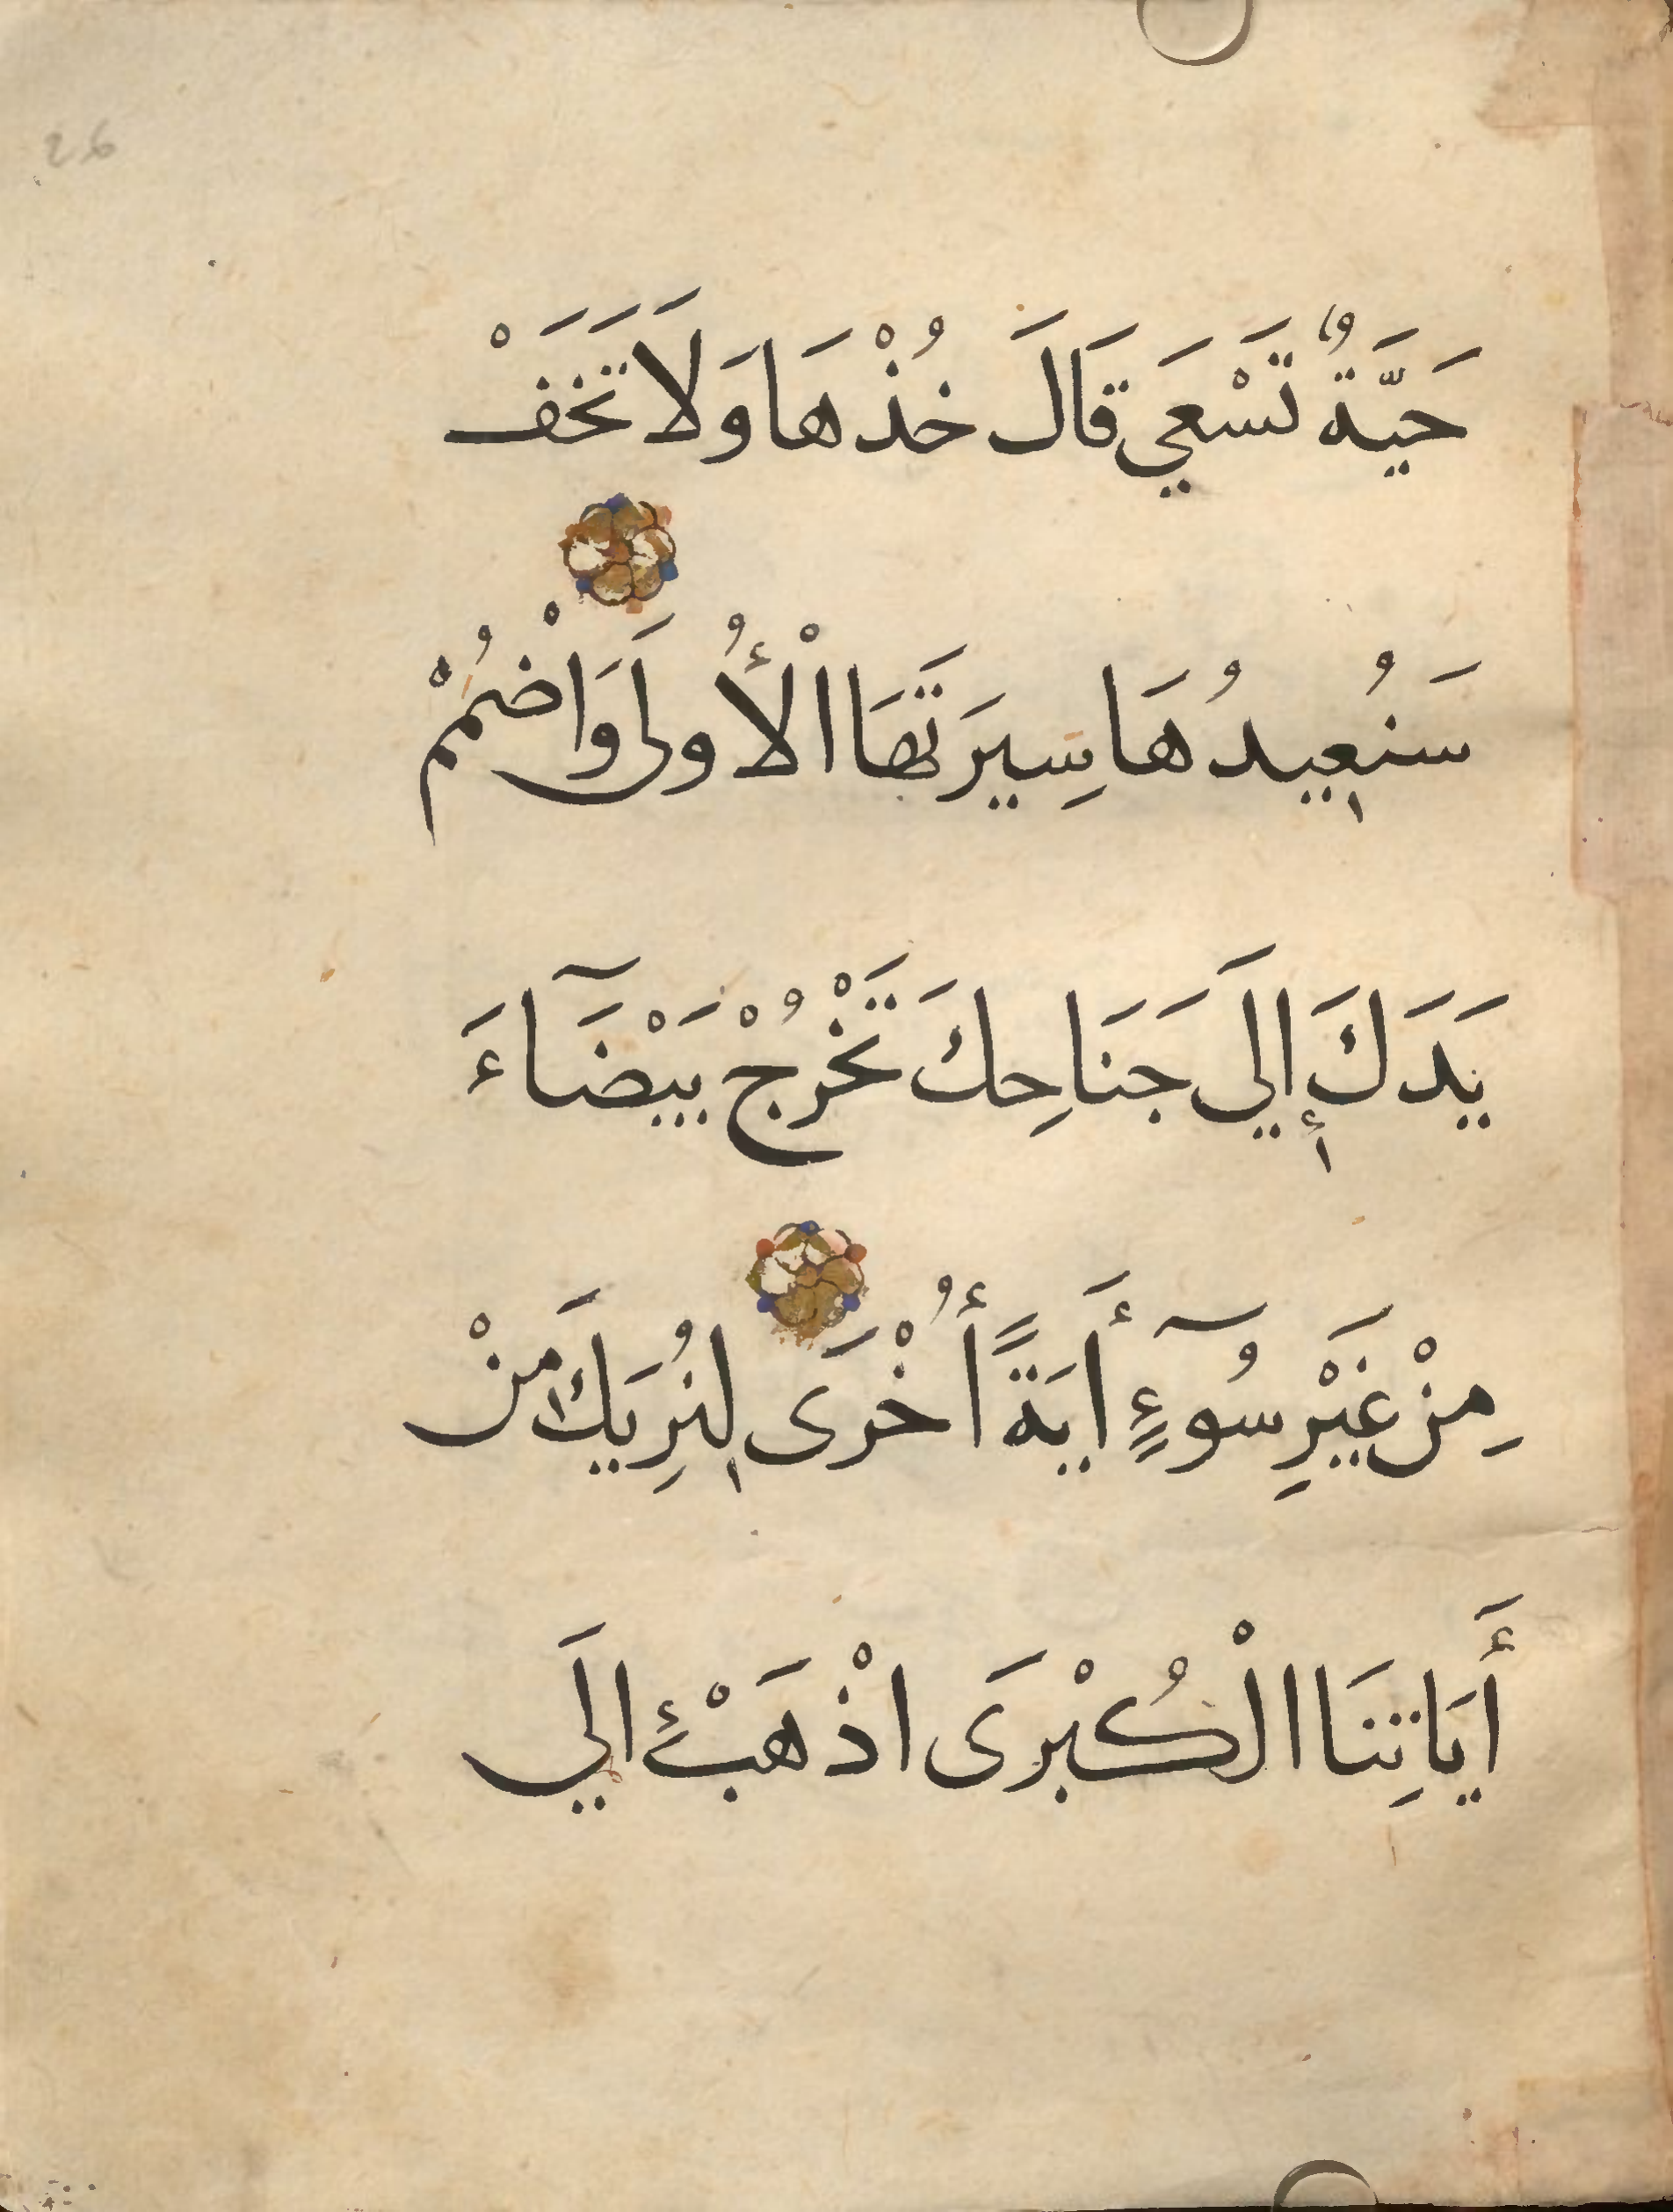 26
حَيَّةٌ تَسْعَي قَالَ خُذْهَا وَلَا تَخَفْ
سَنُعِيدُهَا سِيرَتَهَا الْأُولَى وَاضْمُمْ
يَدَكَ إِلَي جَنَاحِكَ تَخْرُجْ بَيْضَآءَ
مِنْ غَيْرِ سُوٓءٍ أَيَةً أُخْرَى لِنُرِيَكَ مِنْ
أَيَاتِنَا الْكُبْرَى اذْهَبْ إِلَي